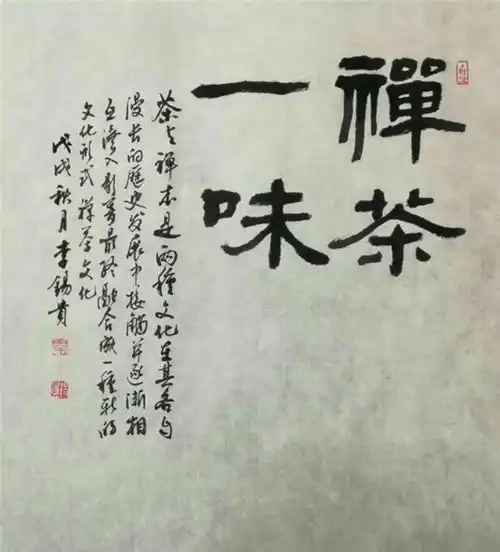 禪茶
一味
茶与禅本是两種文化在其各自
漫长的歷史发展中接觸并逐渐相
互渗入影响最终融合成一種新的
文化形式禅茶文化
戊戌秋月李錫貴